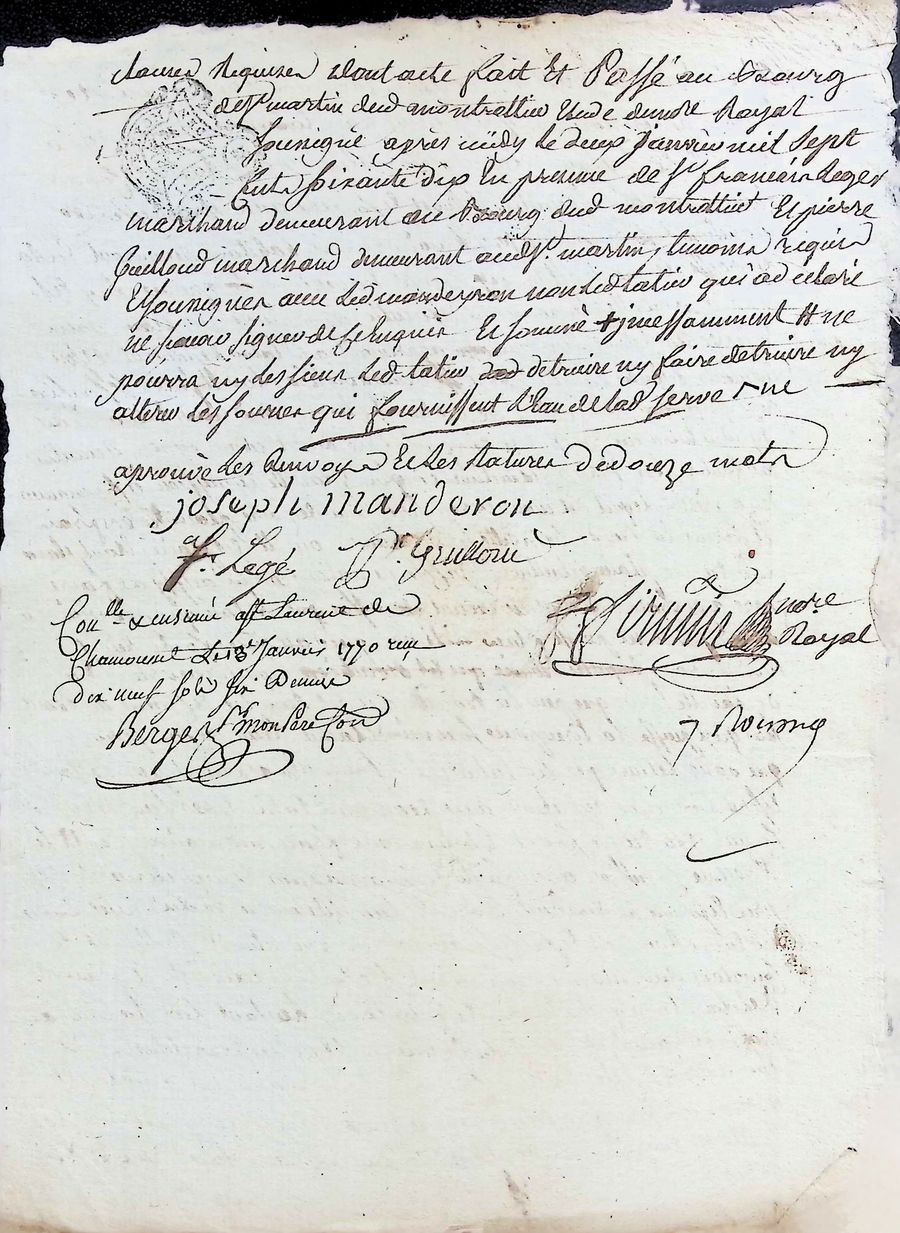 clauses Requises dont acte fait Et Passé au bourg
de St martin dud montrottier Etude du no.re Royal
Sousigné après midy le deux Janvier mil Sept
Cent Soixante dix En presence de Sr francois Leger
marchand demeurant au Bourg dud montrottier Et pierre
Guilloud marchand demeurant aud St. martin, temoins requis
Et Sousignés avec Led manderon non Led tatiu qui a declaré
ne Scavoir Signer de Ce Enquis Et Sommé + ne
pourra ny Les Siens Led tatiu detruire ny faire detruire ny
alterer Les Sources qui fournissent L'eau de Lad Serve ne
aprouvé Les Renvoys Et Les Ratures de douze mots
joseph manderon
fr. Legé pr. Guilloud
Con.lle & insinué à St Laurent de
Chamousset Le 13e Janvier 1770 reçu
dix neuf sols six Deniers
Berger pr mon Pere
no.re
Royal